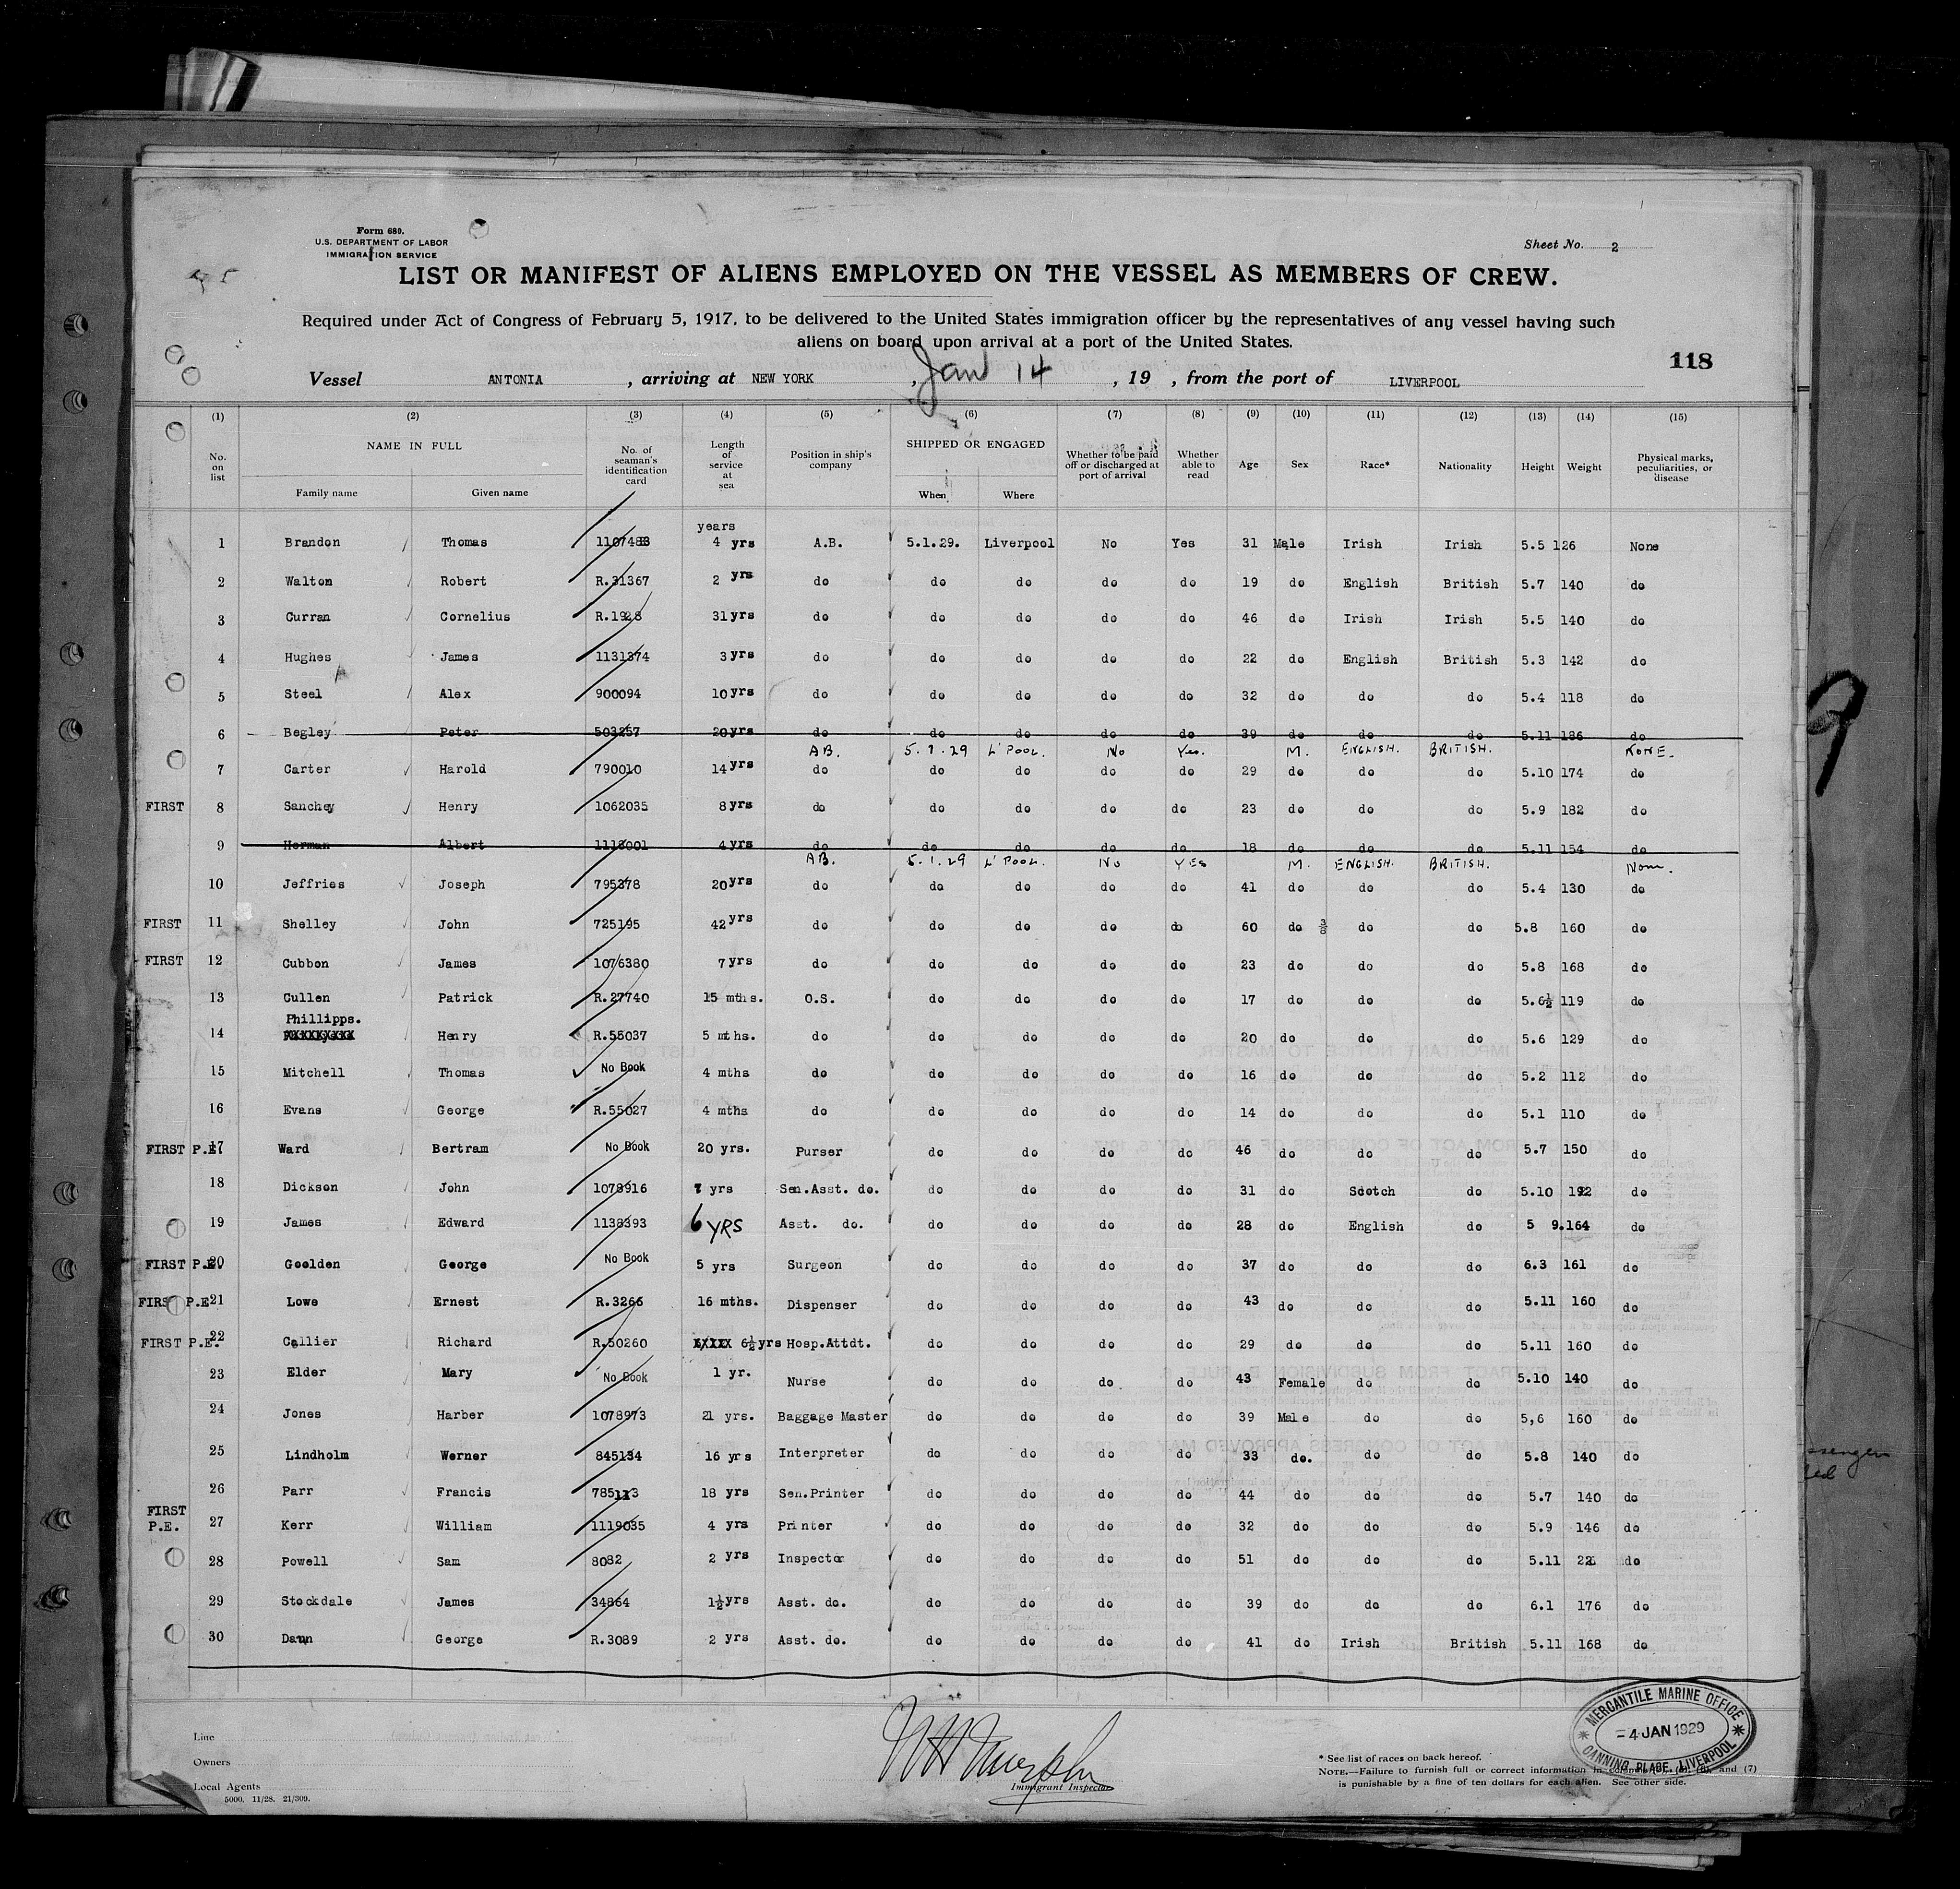 Form 680.
U.S. DEPARTMENT OF LABOR
IMMIGRATION SERVICE
Sheet No. 2
LIST OR MANIFEST OF ALIENS EMPLOYED ON THE VESSEL AS MEMBERS OF CREW.
Required under Act of Congress of February 5, 1917, to be delivered to the United States immigration officer by the representatives of any vessel having such
aliens on board upon arrival at a port of the United States.
118
Vessel ANTONIA, arriving at NEW YORK, Jan 14, 19 , from the port of LIVERPOOL
(1) (2) (3) (4) (5) (6) (7) (8) (9) (10) (11) (12) (13) (14) (15)
No. on list NAME IN FULL Family name Given name No. of seaman's identification card Length of service at sea Position in ship's company SHIPPED OR ENGAGED When Where Whether to be paid off or discharged at port of arrival Whether able to read Age Sex Race* Nationality Height Weight Physical marks, peculiarities, or disease
years
1 Brandon Thomas 1107483 4 yrs A.B. 5.1.29. Liverpool No Yes 31 Male Irish Irish 5.5 126 None
2 Walton Robert R.31367 2 yrs do do do do do 19 do English British 5.7 140 do
3 Curran Cornelius R.1928 31 yrs do do do do do 46 do Irish Irish 5.5 140 do
4 Hughes James 1131374 3 yrs do do do do do 22 do English British 5.3 142 do
5 Steel Alex 900094 10 yrs do do do do do 32 do do do 5.4 118 do
6 Begley Peter 503257 20 yrs do do do do do 39 do do do 5.11 186 do
AB. 5.1.29 L'POOL. No Yes. M. ENGLISH. BRITISH. NONE.
7 Carter Harold 790010 14 yrs do do do do do 29 do do do 5.10 174 do
FIRST 8 Sanchey Henry 1062035 8 yrs do do do do do 23 do do do 5.9 182 do
9 Herman Albert 1118001 4 yrs do do do do do 18 do do do 5.11 154 do
AB. 5.1.29 L'POOL. No YES M. ENGLISH. BRITISH. None.
10 Jeffries Joseph 795378 20 yrs do do do do do 41 do do do 5.4 130 do
FIRST 11 Shelley John 725195 42 yrs do do do do do 60 do do do 5.8 160 do
FIRST 12 Cubbon James 1076380 7 yrs do do do do do 23 do do do 5.8 168 do
13 Cullen Patrick R.27740 15 mths. O.S. do do do do 17 do do do 5.6½ 119 do
Phillipps.
14 Henry R.55037 5 mths. do do do do do 20 do do do 5.6 129 do
15 Mitchell Thomas No Book 4 mths do do do do do 16 do do do 5.2 112 do
16 Evans George R.55027 4 mths do do do do do 14 do do do 5.1 110 do
FIRST P.E. 17 Ward Bertram No Book 20 yrs. Purser do do do do 46 do do do 5.7 150 do
18 Dickson John 1078916 7 yrs Sen.Asst. do. do do do do 31 do Scotch do 5.10 192 do
19 James Edward 1138393 6 YRS Asst. do. do do do do 28 do English do 5 9. 164 do
FIRST P.E. 20 Goolden George No Book 5 yrs Surgeon do do do do 37 do do do 6.3 161 do
FIRST P.E. 21 Lowe Ernest R.3266 16 mths. Dispenser do do do do 43 do do do 5.11 160 do
FIRST P.E. 22 Callier Richard R.50260 6½ yrs Hosp.Attdt. do do do do 29 do do do 5.11 160 do
23 Elder Mary No Book 1 yr. Nurse do do do do 43 Female do do 5.10 140 do
24 Jones Harber 1078973 21 yrs. Baggage Master do do do do 39 Male do do 5,6 160 do
25 Lindholm Werner 845134 16 yrs Interpreter do do do do 33 do. do do 5.8 140 do
26 Parr Francis 785113 18 yrs Sen.Printer do do do do 44 do do do 5.7 140 do
FIRST P.E. 27 Kerr William 1119035 4 yrs Printer do do do do 32 do do do 5.9 146 do
28 Powell Sam 8082 2 yrs Inspector do do do do 51 do do do 5.11 do
29 Stockdale James 34864 1½ yrs Asst. do. do do do do 39 do do do 6.1 176 do
30 Dann George R.3089 2 yrs Asst. do. do do do do 41 do Irish British 5.11 168 do
9
Line
Owners
Local Agents
5000. 11/28. 21/309.
Immigrant Inspector
* See list of races on back hereof.
NOTE.—Failure to furnish full or correct information in columns and (7)
is punishable by a fine of ten dollars for each alien. See other side.
MERCANTILE MARINE OFFICE
4 JAN 1929
CANNING PLACE, LIVERPOOL